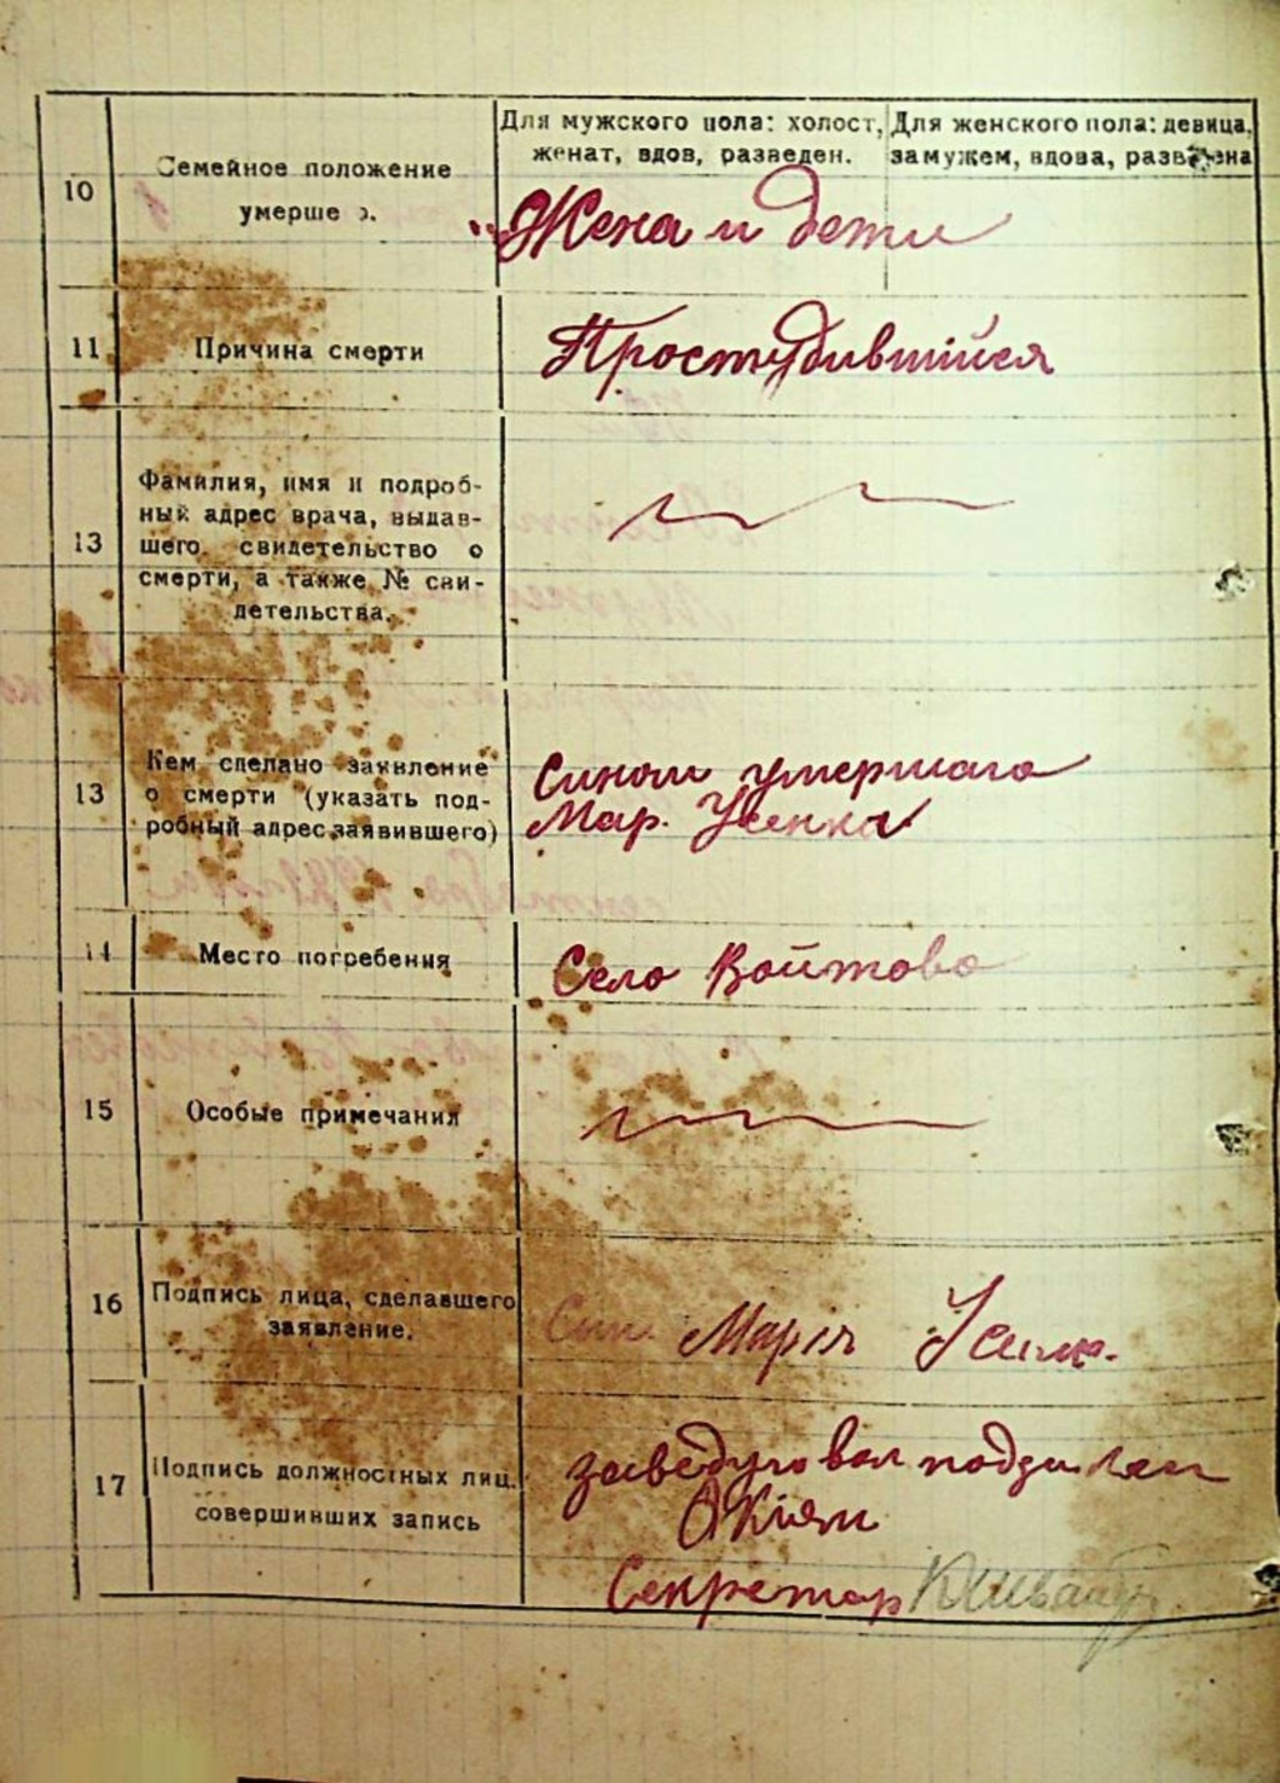 Для мужского пола: холост, женат, вдов, разведен.
Для женского пола: девица, замужем, вдова, разведена
10
Семейное положение
умерше о.
Жена и дети
11
Причина смерти
Простудившийся
13
Фамилия, имя и подроб-
ный адрес врача, выдав-
шего свидетельство о
смерти, а также № сви-
детельства.
13
Кем сделано заявление
о смерти (указать под-
робный адрес заявившего)
Сином умершаго
Мар. Усенка
14
Место погребения
Село Войтово
15
Особые примечания
16
Подпись лица, сделавшего
заявление.
Сын Марія Усенко.
17
Подпись должностных лиц.
совершивших запись
Секретар